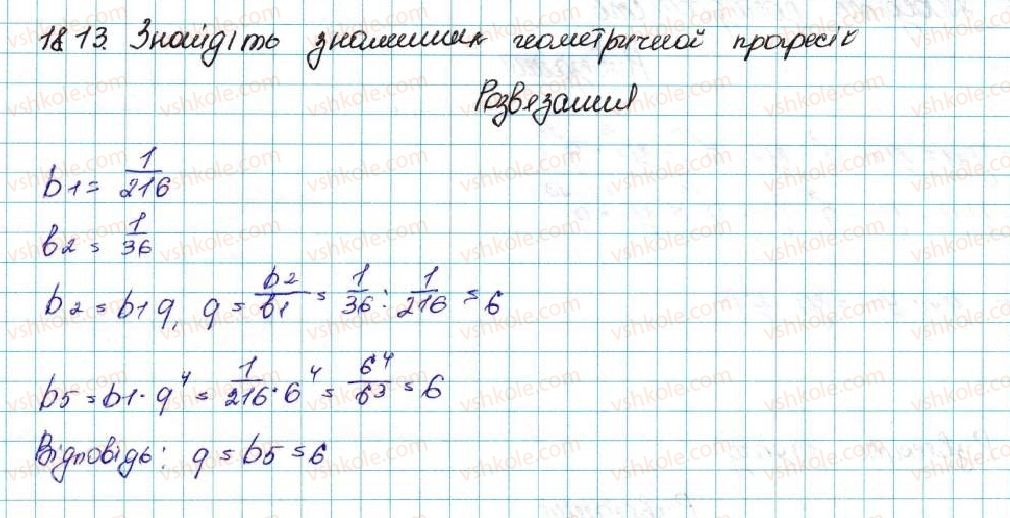 18.13. Знайдіть знаменник геометричної прогресії
Розвязання
b1 = 1/216
b2 = 1/36
b2 = b1 q, q = b2/b1 = 1/36 : 1/216 = 6
b5 = b1 · q^4 = 1/216 · 6^4 = 6^4/6^3 = 6
Відповідь: q = b5 = 6